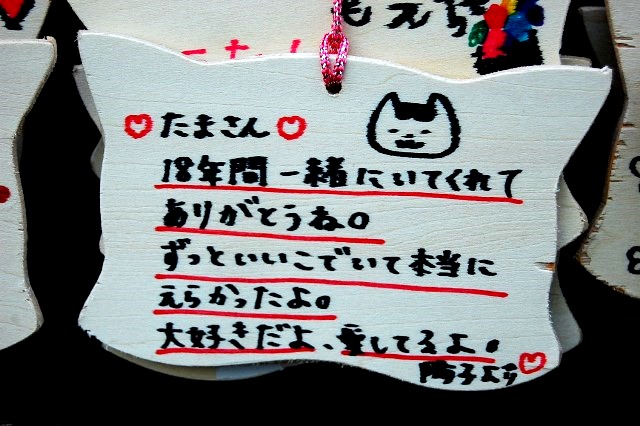 たまさん
18年間一緒にいてくれて
ありがとうね。
ずっといいこでいて本当に
えらかったよ。
大好きだよ、愛してるよ。
陽子より